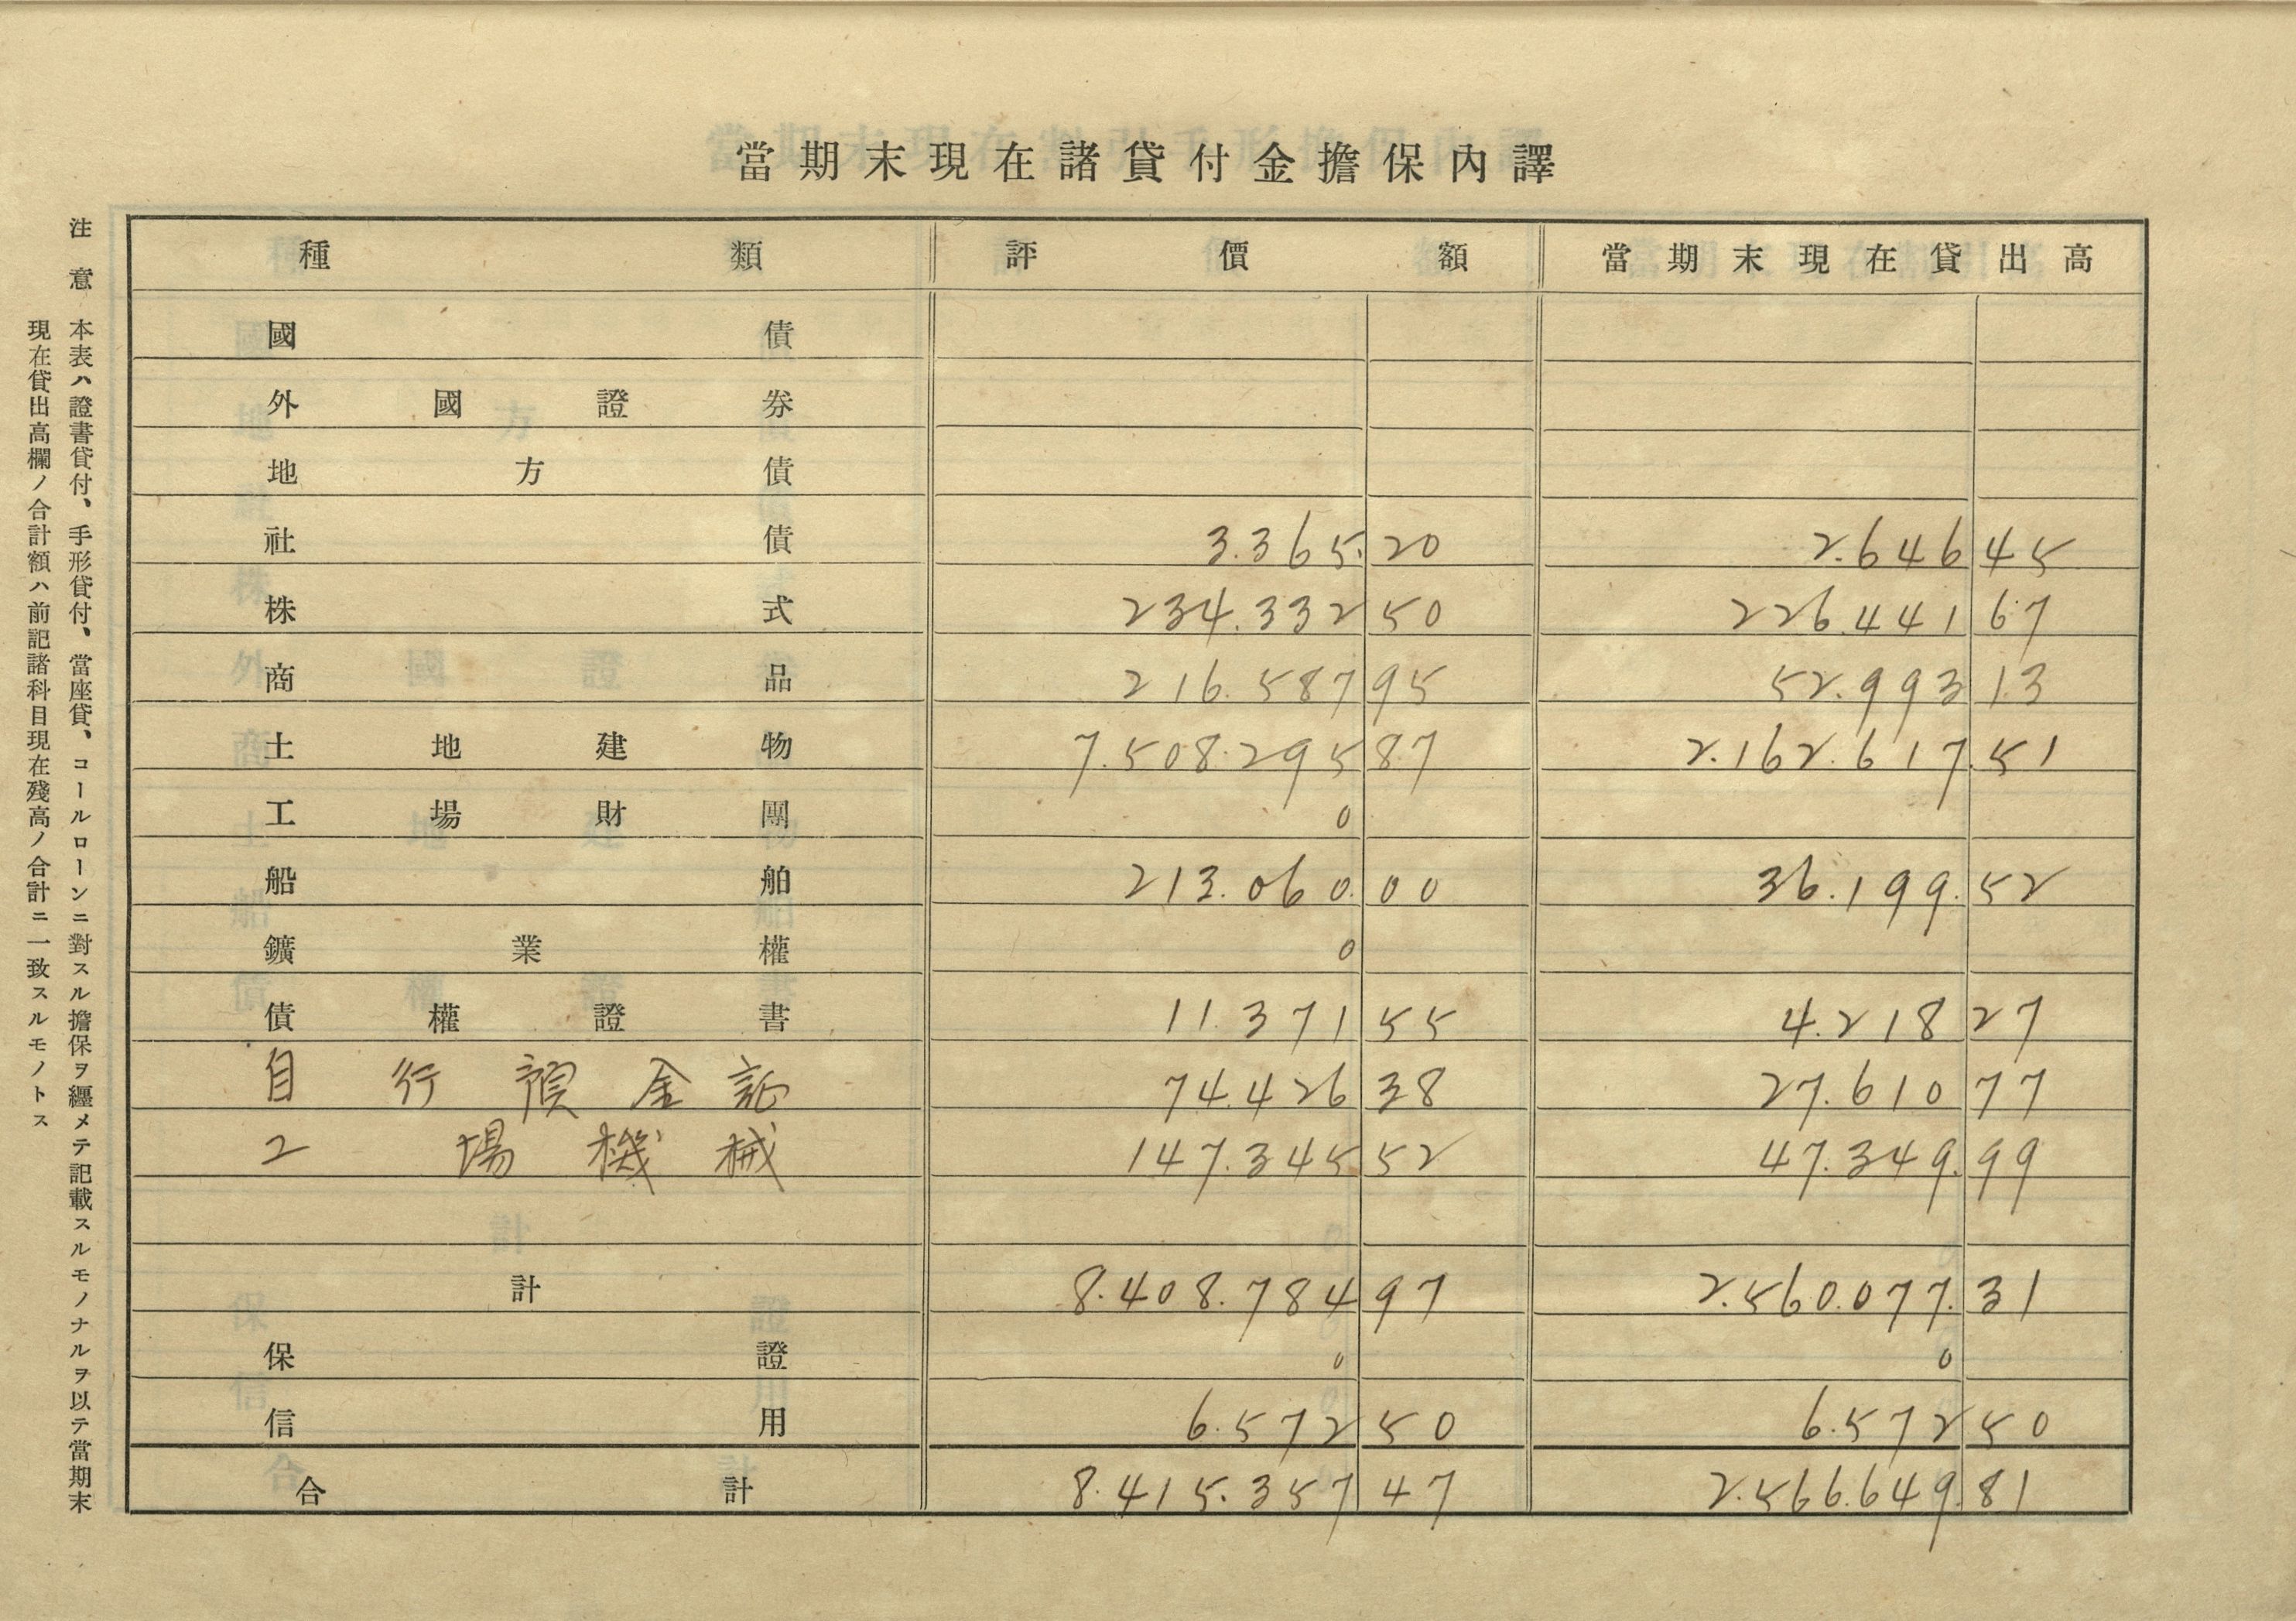 當期末現在諸貸付金擔保內譯
種類 評價額 當期末現在貸出高
國債
外國證券
地方債
社債 3.365.20 2.646 45
株式 234.332 50 226.441 67
商品 216.587 95 52.993 13
土地建物 7.508.295 87 2.162.617.51
工場財團 0
船舶 213.060.00 36.199.52
鑛業權 0
債權證書 11.371 55 4.218 27
自行預金証 74.426 38 27.610 77
工場機械 147.345 52 47.349.99
計 8.408.784 97 2.560.077.31
保證 0 0
信用 6.572 50 6.572 50
合計 8.415.357 47 2.566.649.81
注意 本表ハ證書貸付、手形貸付、當座貸、コールローンニ對スル擔保ヲ纒メテ記載スルモノナルヲ以テ當期末
現在貸出高欄ノ合計額ハ前記諸科目現在殘高ノ合計ニ一致スルモノトス